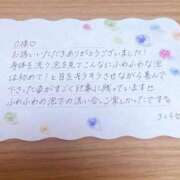 O様♡
お誘いいただきありがとうございました!
身体を洗う泡を見てこんなにふわふわな泡
は初めて!と目をキラキラさせながら喜んで
下さった姿がすごく印象に残っています♡
ふわふわの泡での洗い合いっこ楽しかったですね